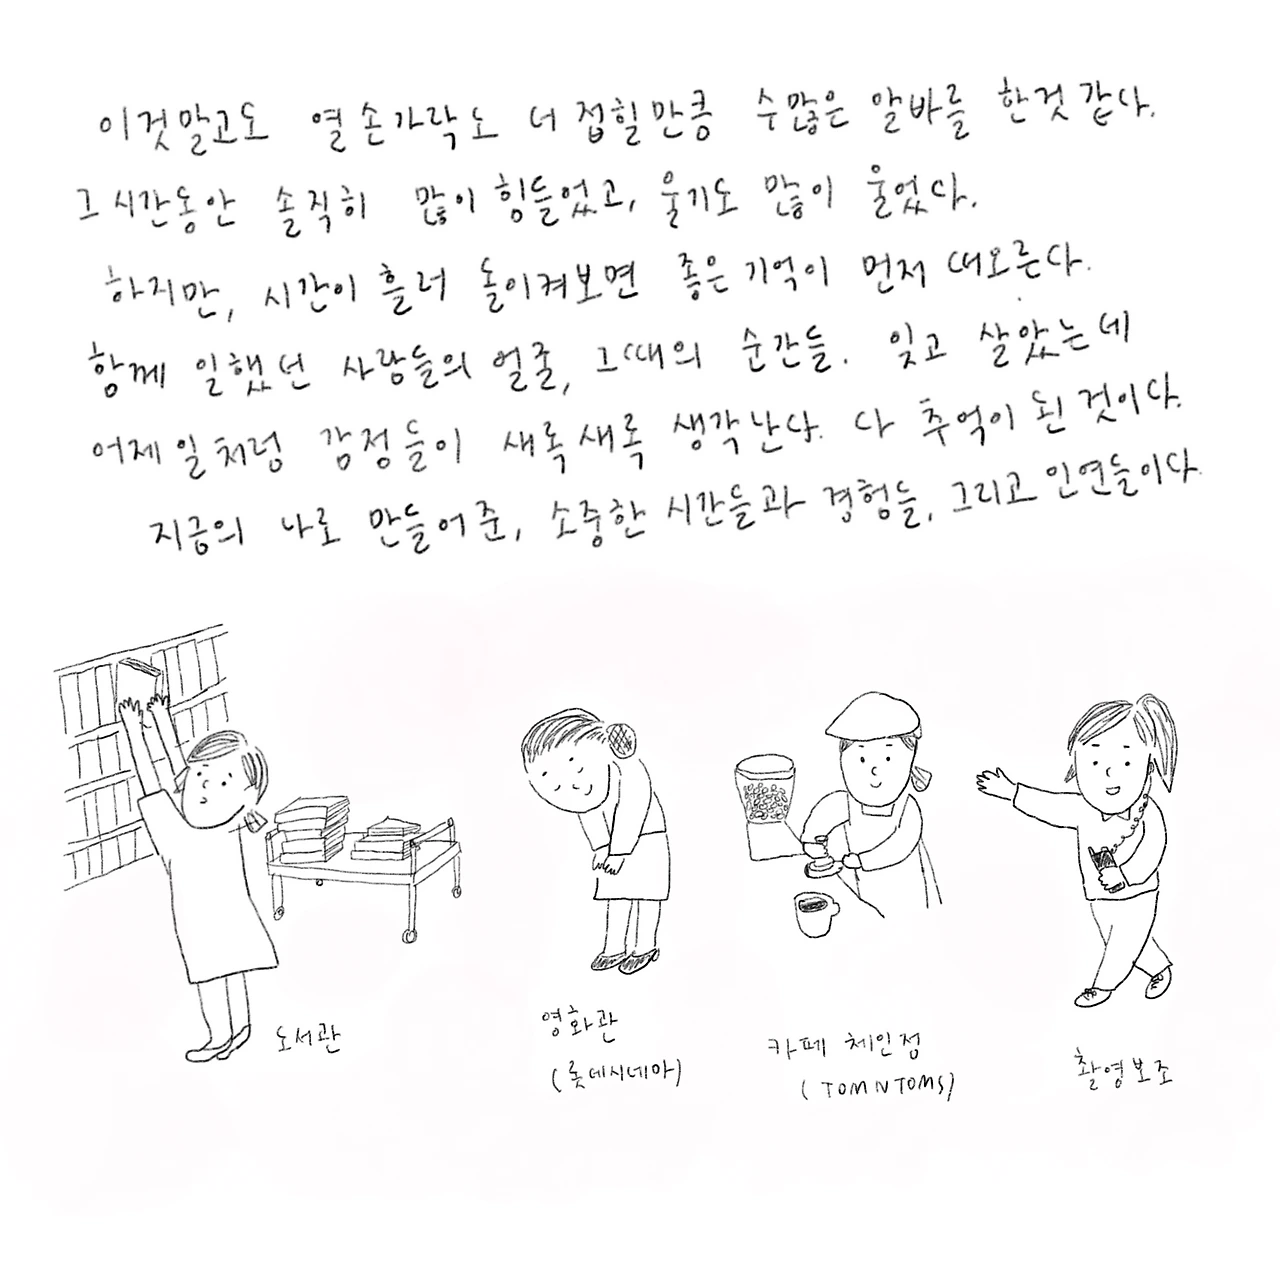 이것말고도 열손가락도 더 접힐만큼 수많은 알바를 한것 같다.
그 시간동안 솔직히 많이 힘들었고, 울기도 많이 울었다.
하지만, 시간이 흘러 돌이켜보면 좋은 기억이 먼저 떠오른다.
함께 일했던 사람들의 얼굴, 그때의 순간들. 잊고 살았는데
어제 일처럼 감정들이 새록새록 생각난다. 다 추억이 된 것이다.
지금의 나로 만들어준, 소중한 시간들과 경험들, 그리고 인연들이다
도서관
영화관
(롯데시네마)
카페 체인점
(TOMNTOMS)
촬영보조